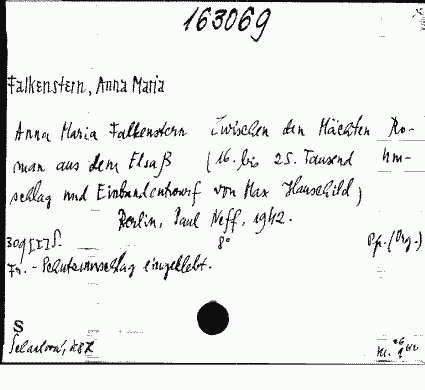 163069
Falkenstern, Anna Maria
Anna Maria Falkenstern Zwischen den Mächten Ro-
man aus dem Elsaß (16. bis 25. Tausend Um-
schlag und Einbandentwurf von Max Hauschild)
Berlin, Paul Neff, 1942.
8° Pp. (Org.)
Fr. - Schutzumschlag eingeklebt.
S